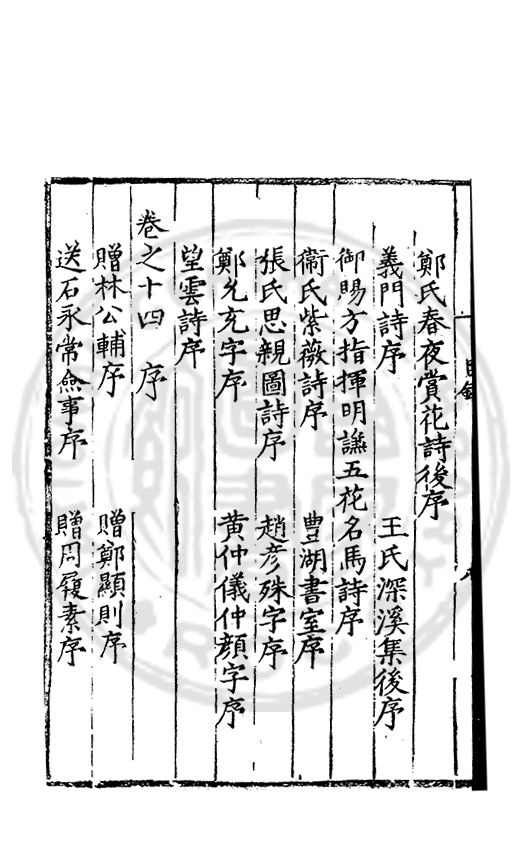 鄭氏春夜賞花詩後序
義門詩序　王氏深溪集後序
御賜方指揮明謙五花名馬詩序
衞氏紫薇詩序　豊湖書室序
張氏思親圖詩序　趙彥殊字序
鄭允充字序　黃仲儀仲顔字序
望雲詩序
卷之十四　序
贈林公輔序　贈鄭顯則序
送石永常僉事序　贈周履素序